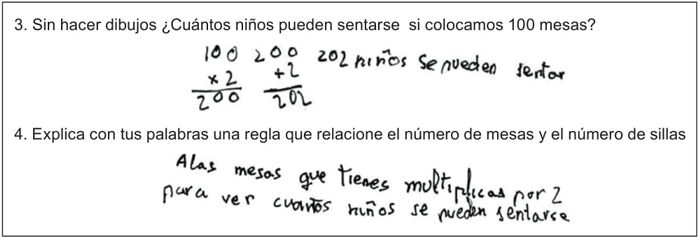 3. Sin hacer dibujos ¿Cuántos niños pueden sentarse si colocamos 100 mesas?
100 200 202 niños Se pueden sentar
x 2 +2
200 202
4. Explica con tus palabras una regla que relacione el número de mesas y el número de sillas
Alas mesas que tienes multiplicas por 2
para ver cuantos niños se pueden sentarse